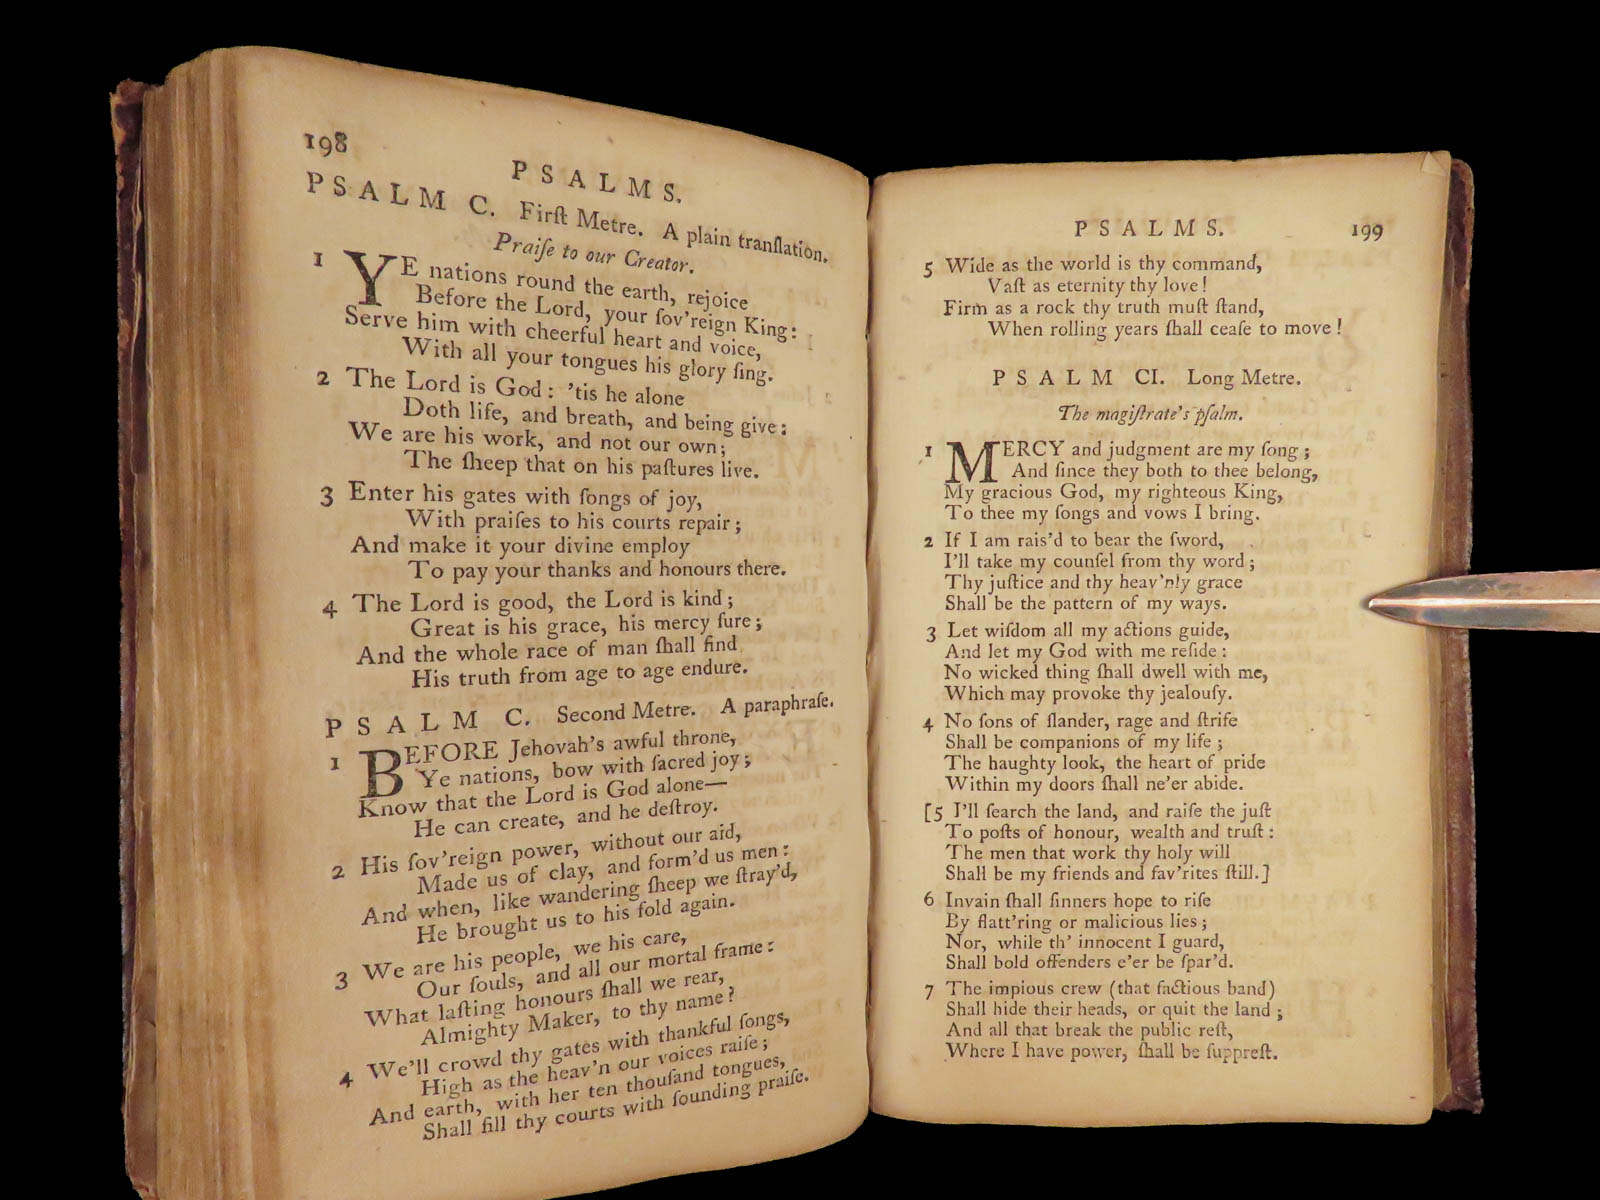 198
PSALMS.
PSALM C. Firſt Metre. A plain tranſlation.
Praiſe to our Creator.
1 YE nations round the earth, rejoice
Before the Lord, your ſov'reign King:
Serve him with cheerful heart and voice,
With all your tongues his glory ſing.
2 The Lord is God: 'tis he alone
Doth life, and breath, and being give:
We are his work, and not our own;
The ſheep that on his paſtures live.
3 Enter his gates with ſongs of joy,
With praiſes to his courts repair;
And make it your divine employ
To pay your thanks and honours there.
4 The Lord is good, the Lord is kind;
Great is his grace, his mercy ſure;
And the whole race of man ſhall find
His truth from age to age endure.
PSALM C. Second Metre. A paraphraſe.
1 BEFORE Jehovah's awful throne,
Ye nations, bow with ſacred joy;
Know that the Lord is God alone—
He can create, and he deſtroy.
2 His ſov'reign power, without our aid,
Made us of clay, and form'd us men:
And when, like wandering ſheep we ſtray'd,
He brought us to his fold again.
3 We are his people, we his care,
Our ſouls, and all our mortal frame:
What laſting honours ſhall we rear,
Almighty Maker, to thy name?
4 We'll crowd thy gates with thankful ſongs,
High as the heav'n our voices raiſe;
And earth, with her ten thouſand tongues,
Shall fill thy courts with ſounding praiſe.
PSALMS. 199
5 Wide as the world is thy command,
Vaſt as eternity thy love!
Firm as a rock thy truth muſt ſtand,
When rolling years ſhall ceaſe to move!
PSALM CI. Long Metre.
The magiſtrate's pſalm.
1 MERCY and judgment are my ſong;
And ſince they both to thee belong,
My gracious God, my righteous King,
To thee my ſongs and vows I bring.
2 If I am rais'd to bear the ſword,
I'll take my counſel from thy word;
Thy juſtice and thy heav'nly grace
Shall be the pattern of my ways.
3 Let wiſdom all my actions guide,
And let my God with me reſide:
No wicked thing ſhall dwell with me,
Which may provoke thy jealouſy.
4 No ſons of ſlander, rage and ſtrife
Shall be companions of my life;
The haughty look, the heart of pride
Within my doors ſhall ne'er abide.
[5 I'll ſearch the land, and raiſe the juſt
To poſts of honour, wealth and truſt:
The men that work thy holy will
Shall be my friends and fav'rites ſtill.]
6 Invain ſhall ſinners hope to riſe
By flatt'ring or malicious lies;
Nor, while th' innocent I guard,
Shall bold offenders e'er be ſpar'd.
7 The impious crew (that factious band)
Shall hide their heads, or quit the land;
And all that break the public reſt,
Where I have power, ſhall be ſuppreſt.